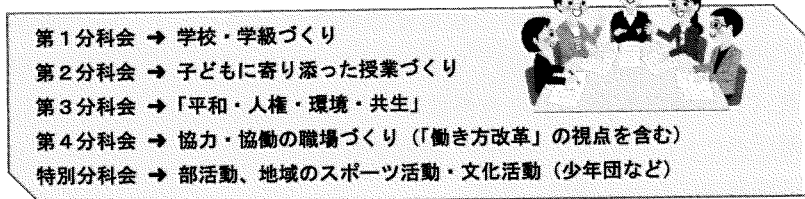 第1分科会 ➔ 学校・学級づくり
第2分科会 ➔ 子どもに寄り添った授業づくり
第3分科会 ➔ 「平和・人権・環境・共生」
第4分科会 ➔ 協力・協働の職場づくり（「働き方改革」の視点を含む）
特別分科会 ➔ 部活動、地域のスポーツ活動・文化活動（少年団など）